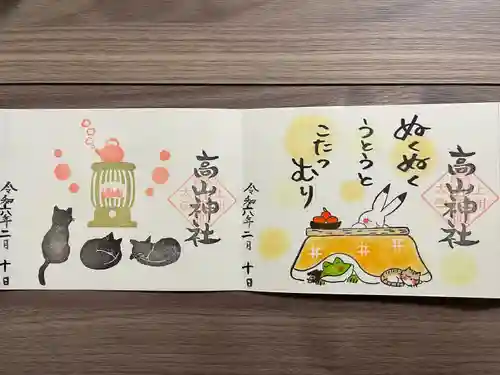 高山神社
令和六年二月十日
ぬくぬく
うとうと
こたつ
むり
高山神社
令和六年二月十日